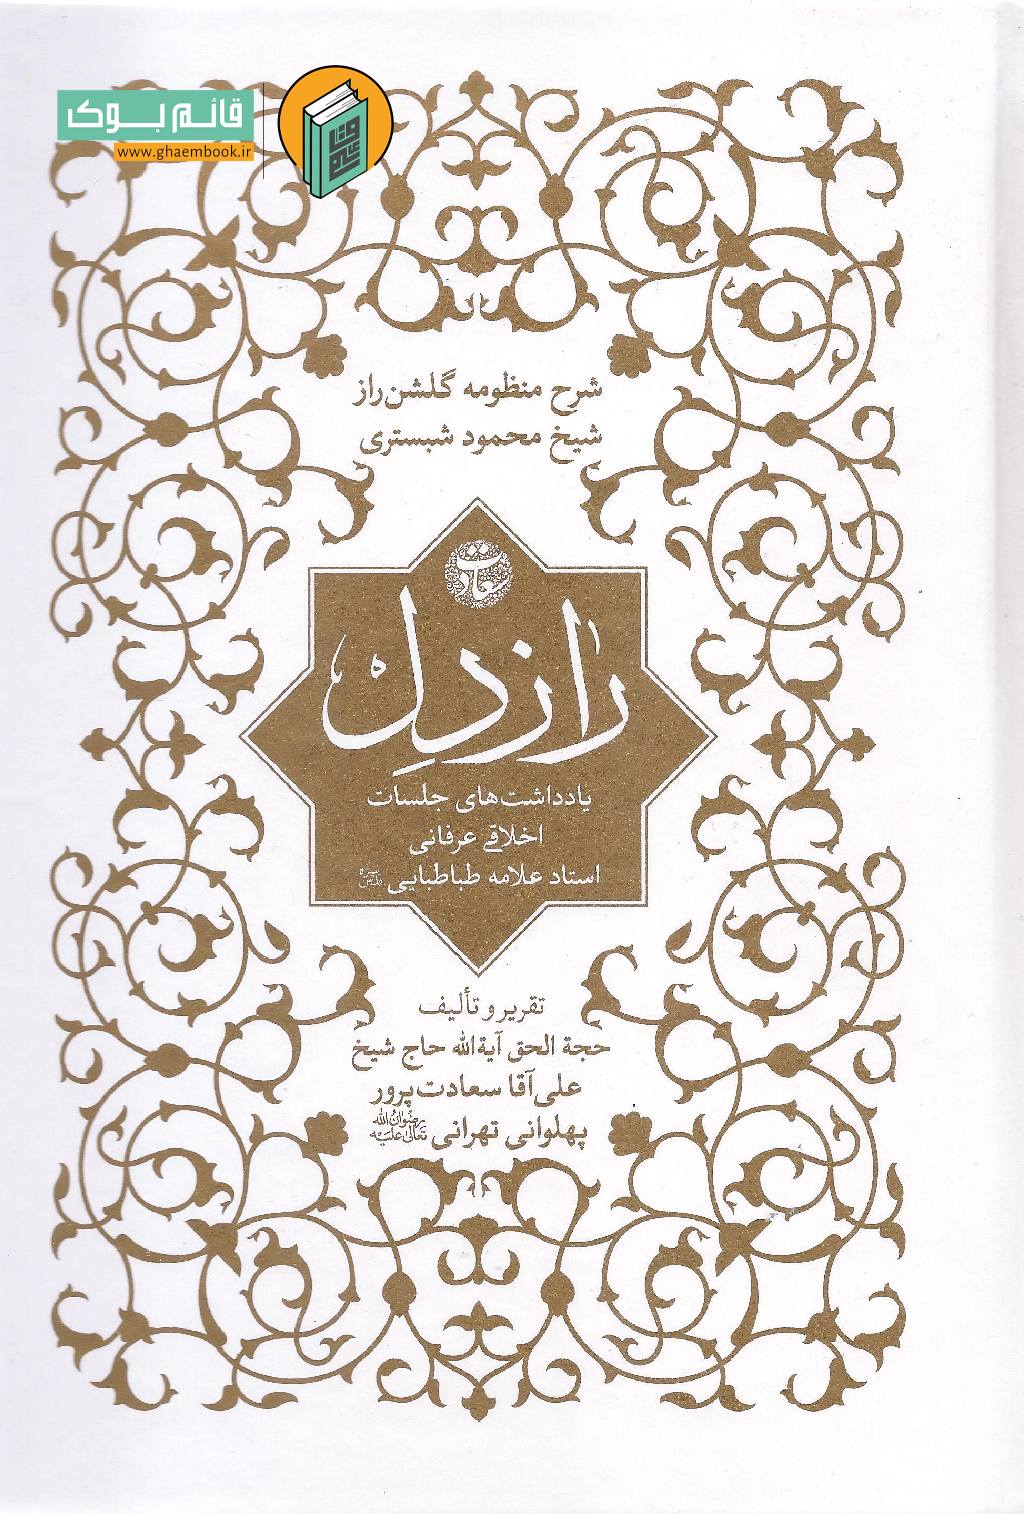 قائم بوک
www.ghaembook.ir
شرح منظومه گلشن راز
شیخ محمود شبستری
راز دل
یادداشت‌های جلسات
اخلاقی عرفانی
استاد علامه طباطبایی قدس سره
تقریر و تألیف
حجة الحق آیة الله حاج شیخ
علی آقا سعادت پرور
پهلوانی تهرانی رضوان الله تعالی علیه